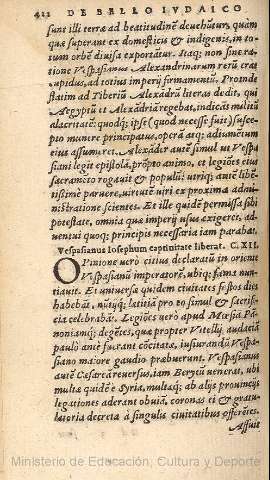 412 DE BELLO IVDAICO
sunt illi terræ ad beatitudinẽ deuehũtur, quàm
quæ superant ex domesticis & indigenis, in to-
tum orbẽ diuisa exportãtur. Itaq; non sine ra-
tione Vespasianus Alexandrinarum rerũ erat
cupidus, ad totius imperij firmamentũ. Proinde
statim ad Tiberiũ Alexãdrũ literas dedit, qui
Aegyptũ et Alexãdriã regebat, indicãs militũ
alacritatẽ: quodq; ipse (quod necesse fuit) suscep-
to munere principatus, operã atq; adiumẽtum
eius assumeret. Alexãdẽr autẽ simul ut Vespa
siani legit epistolã, prõpto animo, et legiões eius
sacramẽto rogauit & populũ: utriq; autẽ libẽ-
tissimè paruere, uirtutẽ uiri ex proxima admi-
nistratione scientes. Et ille quidẽ permissa sibi
potestate, omnia quæ imperij usus exigeret, ad-
uentui quoq; principis necessaria iam parabat.
Vespasianus Iosephum captiuitate liberat. C. XII.
OPinione uerò citius declaratũ in oriente
Vespasianũ imperatorẽ, ubiq; fama nun-
tiauit. Et uniuersæ quidem ciuitates festos dies
habebãt, nũtijq; lætitia pro eo simul & sacrifi-
cia celebrabãt. Legiões uerò apud Mœsiã Pã-
noniamq; degẽtes, quæ propter Vitellij audaciã
paulò antè fuerant cõcitatæ, iusiurandũ Vespa-
siano maiore gaudio præbuerunt. Vespasianus
autẽ Cæsarea reuersus, iam Berytũ uenerat, ubi
multæ quidẽ è Syria, multæq; ab alijs prouincijs
legationes aderant obuiã, coronas ei & gratu-
latoria decreta à singulis ciuitatibus offerẽtes.
Affuit
Ministerio de Educación, Cultura y Deporte